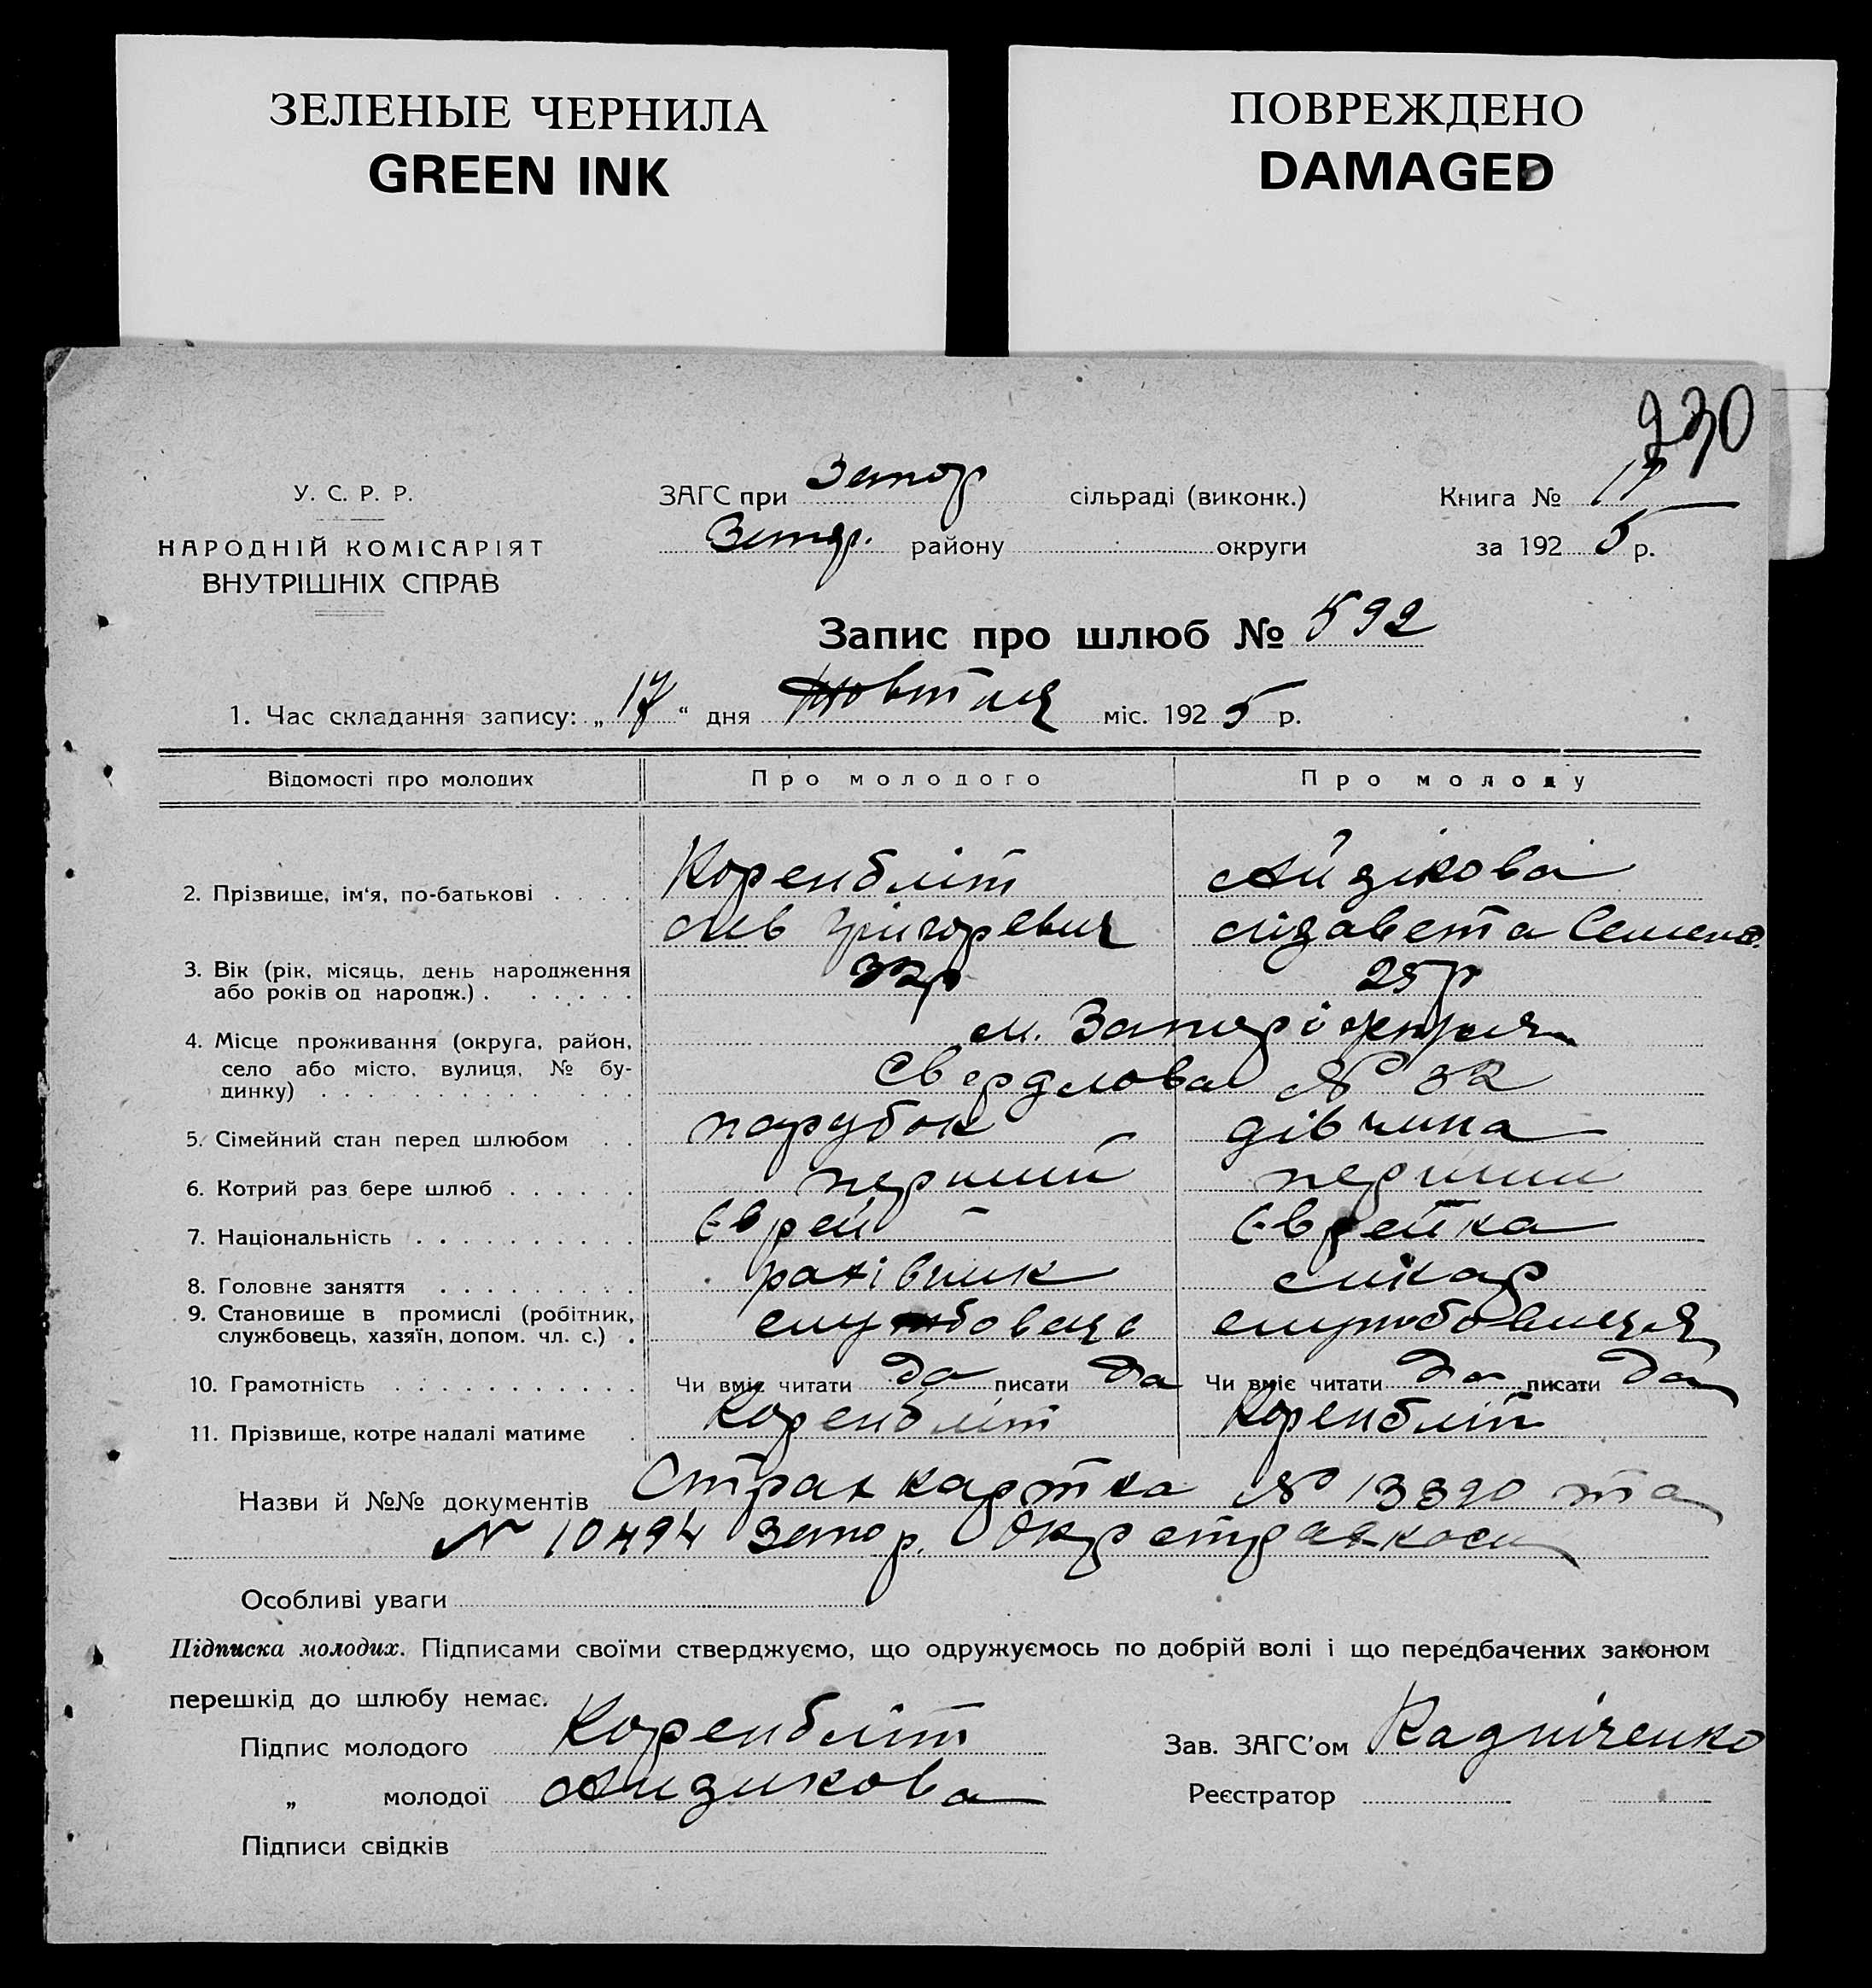 ЗЕЛЕНЫЕ ЧЕРНИЛА
GREEN INK
ПОВРЕЖДЕНО
DAMAGED
230
У. С. Р. Р.
НАРОДНІЙ КОМІСАРІЯТ
ВНУТРІШНІХ СПРАВ
ЗАГС при Запор сільраді (виконк.)
Запор. району округи
Книга № 17
за 1925 р.
Запис про шлюб № 592
1. Час складання запису: „17“ дня Жовтня міс. 1925 р.
Відомості про молодих Про молодого Про молоду
2. Прізвище, ім'я, по-батькові Коренбліт Айзікова
Лев Григоревич Лізавета Семенов.
3. Вік (рік, місяць, день народження або років од народж.) 32р 25р
4. Місце проживання (округа, район, село або місто, вулиця, № будинку) м. Запоріжжя
Свердлова № 32
5. Сімейний стан перед шлюбом парубок дівчина
6. Котрий раз бере шлюб перший перший
7. Національність Єврей Єврейка
8. Головне заняття рахівник лікар
9. Становище в промислі (робітник, службовець, хазяїн, допом. чл. с.) службовець службовиця
10. Грамотність Чи вміє читати да писати да Чи вміє читати да писати да
11. Прізвище, котре надалі матиме Коренбліт Коренбліт
Назви й №№ документів Страх картка № 13390 та
№ 10494 Запор. Окрстрахкаси
Особливі уваги
Підписка молодих. Підписами своїми стверджуємо, що одружуємось по добрій волі і що передбачених законом
перешкід до шлюбу немає.
Підпис молодого Коренбліт
Зав. ЗАГС'ом
„ молодої Айзикова
Реєстратор
Підписи свідків